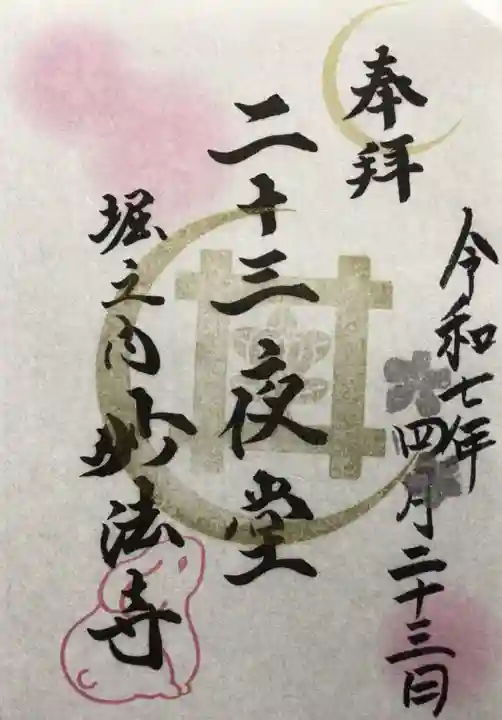 奉拝
令和七年四月二十三日
二十三夜堂
堀之内妙法寺